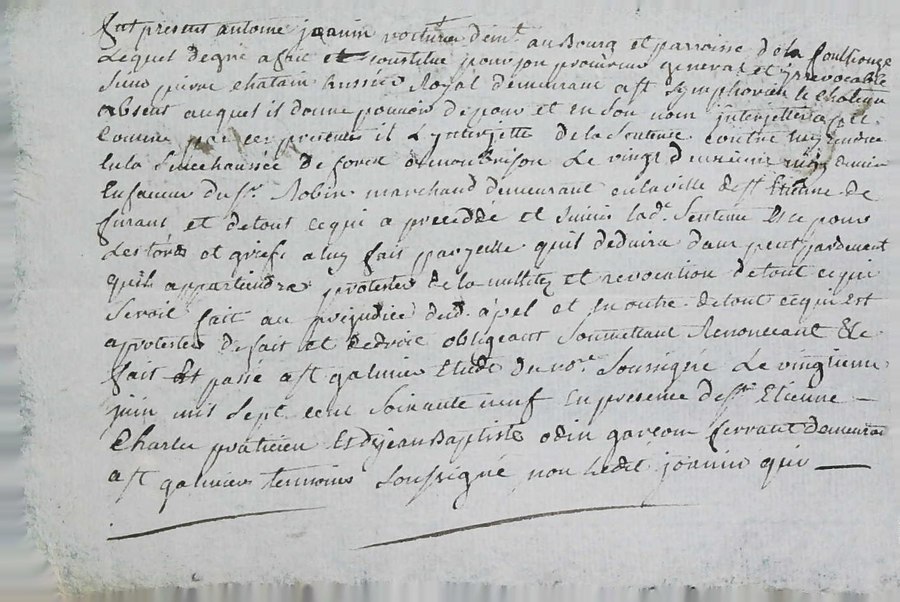 fut present antoine joanin voitur demt. au Bourg et parroisse de la fouillouze
Lequel de gré a fait et constitue pour son procureur general et irrevocable
sieur pierre Chatain huissier Royal demeurant a st Symphorien le Chateau
absent auquel il donne pouvoir de pour et en son nom interjetter apel
Comme par ces presentes il L'interjette de la Sentence contre luy rendue
En la Senechaussée de forest de montbrison Le vingt deuxieme may dernier
En faveur du sr. Robin marchand demeurant en la ville de st Etienne de
furant et de tout ce qui a précédé et suivi lade. Sentence Et ce pour
Les torts et griefs a luy fait par jcelle qu'il deduira dans pent pardevant
qu'il appartiendra protester de la nullité et revocation de tout ce qui
Seroit fait au prejudice dud. apel et En outre de tout ce qui Est
a protester de fait et de droit obligeant Soumettant Renoncant Etc
fait Et passé a st galmier Etude du nore. Soussigné Le vingtieme
juin mil Sept cent Soixante neuf En presence de sr. Etienne
Charles praticien Et de jean Baptiste odin garçon ferrant demeurant
a st galmier temoins Soussigné non ledit joanin qui